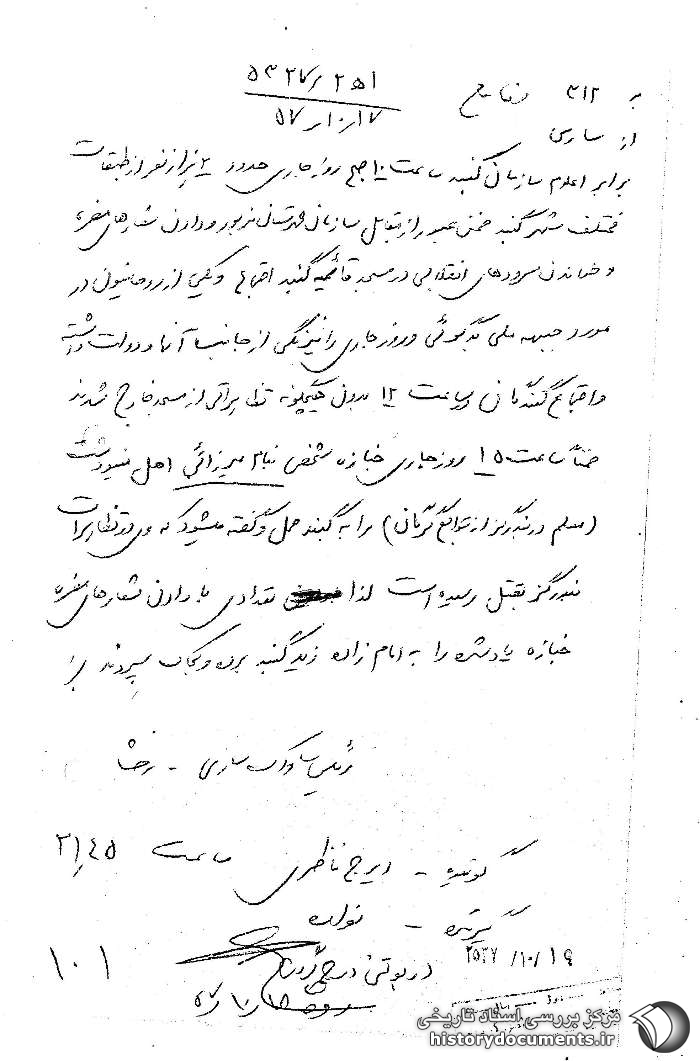 به ۳۱۲
از ساری
۵۷/۱۰/۱۷
برابر اعلام سازمان گنبد ساعت ۱۰ صبح روز جاری حدود هزار نفر از طبقات
مختلف شهر گنبد ضمن عبور از مقابل سازمان و دادن شعارهای مضره
و خواندن سرودهای انقلابی در مسجد قائمیه گنبد اجتماع و یکی از روحانیون در
مورد جبهه ملی بدگوئی و روز جاری را نیرنگی از جانب آنها و دولت دانسته
و اجتماع کنندگان ساعت ۱۲ بدون هیچگونه تظاهراتی از مسجد خارج شدند
ضمناً ساعت ۱۵ روز جاری جنازه شخصی بنام میرزائی اهل مینودشت
(معلم در از توابع ) را به گنبد حمل و گفته میشود که وی در تظاهرات
بقتل رسیده است لذا تعدادی با دادن شعارهای مضره
جنازه یاد شده را به امام زاده زید گنبد برده و بخاک سپردند
رئیس ساواک ساری -
گوینده - ایرج ناظری ساعت ۲۱/۴۵
گیرنده -
۲۵۳۷/۱۰/۱۹
در بولتن درج گردید
۱۰۱
مرکز بررسی اسناد تاریخی
historydocuments.ir